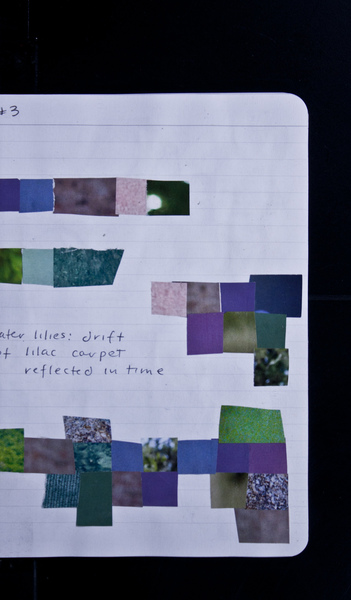 #3
water lilies: drift
of lilac carpet
reflected in time